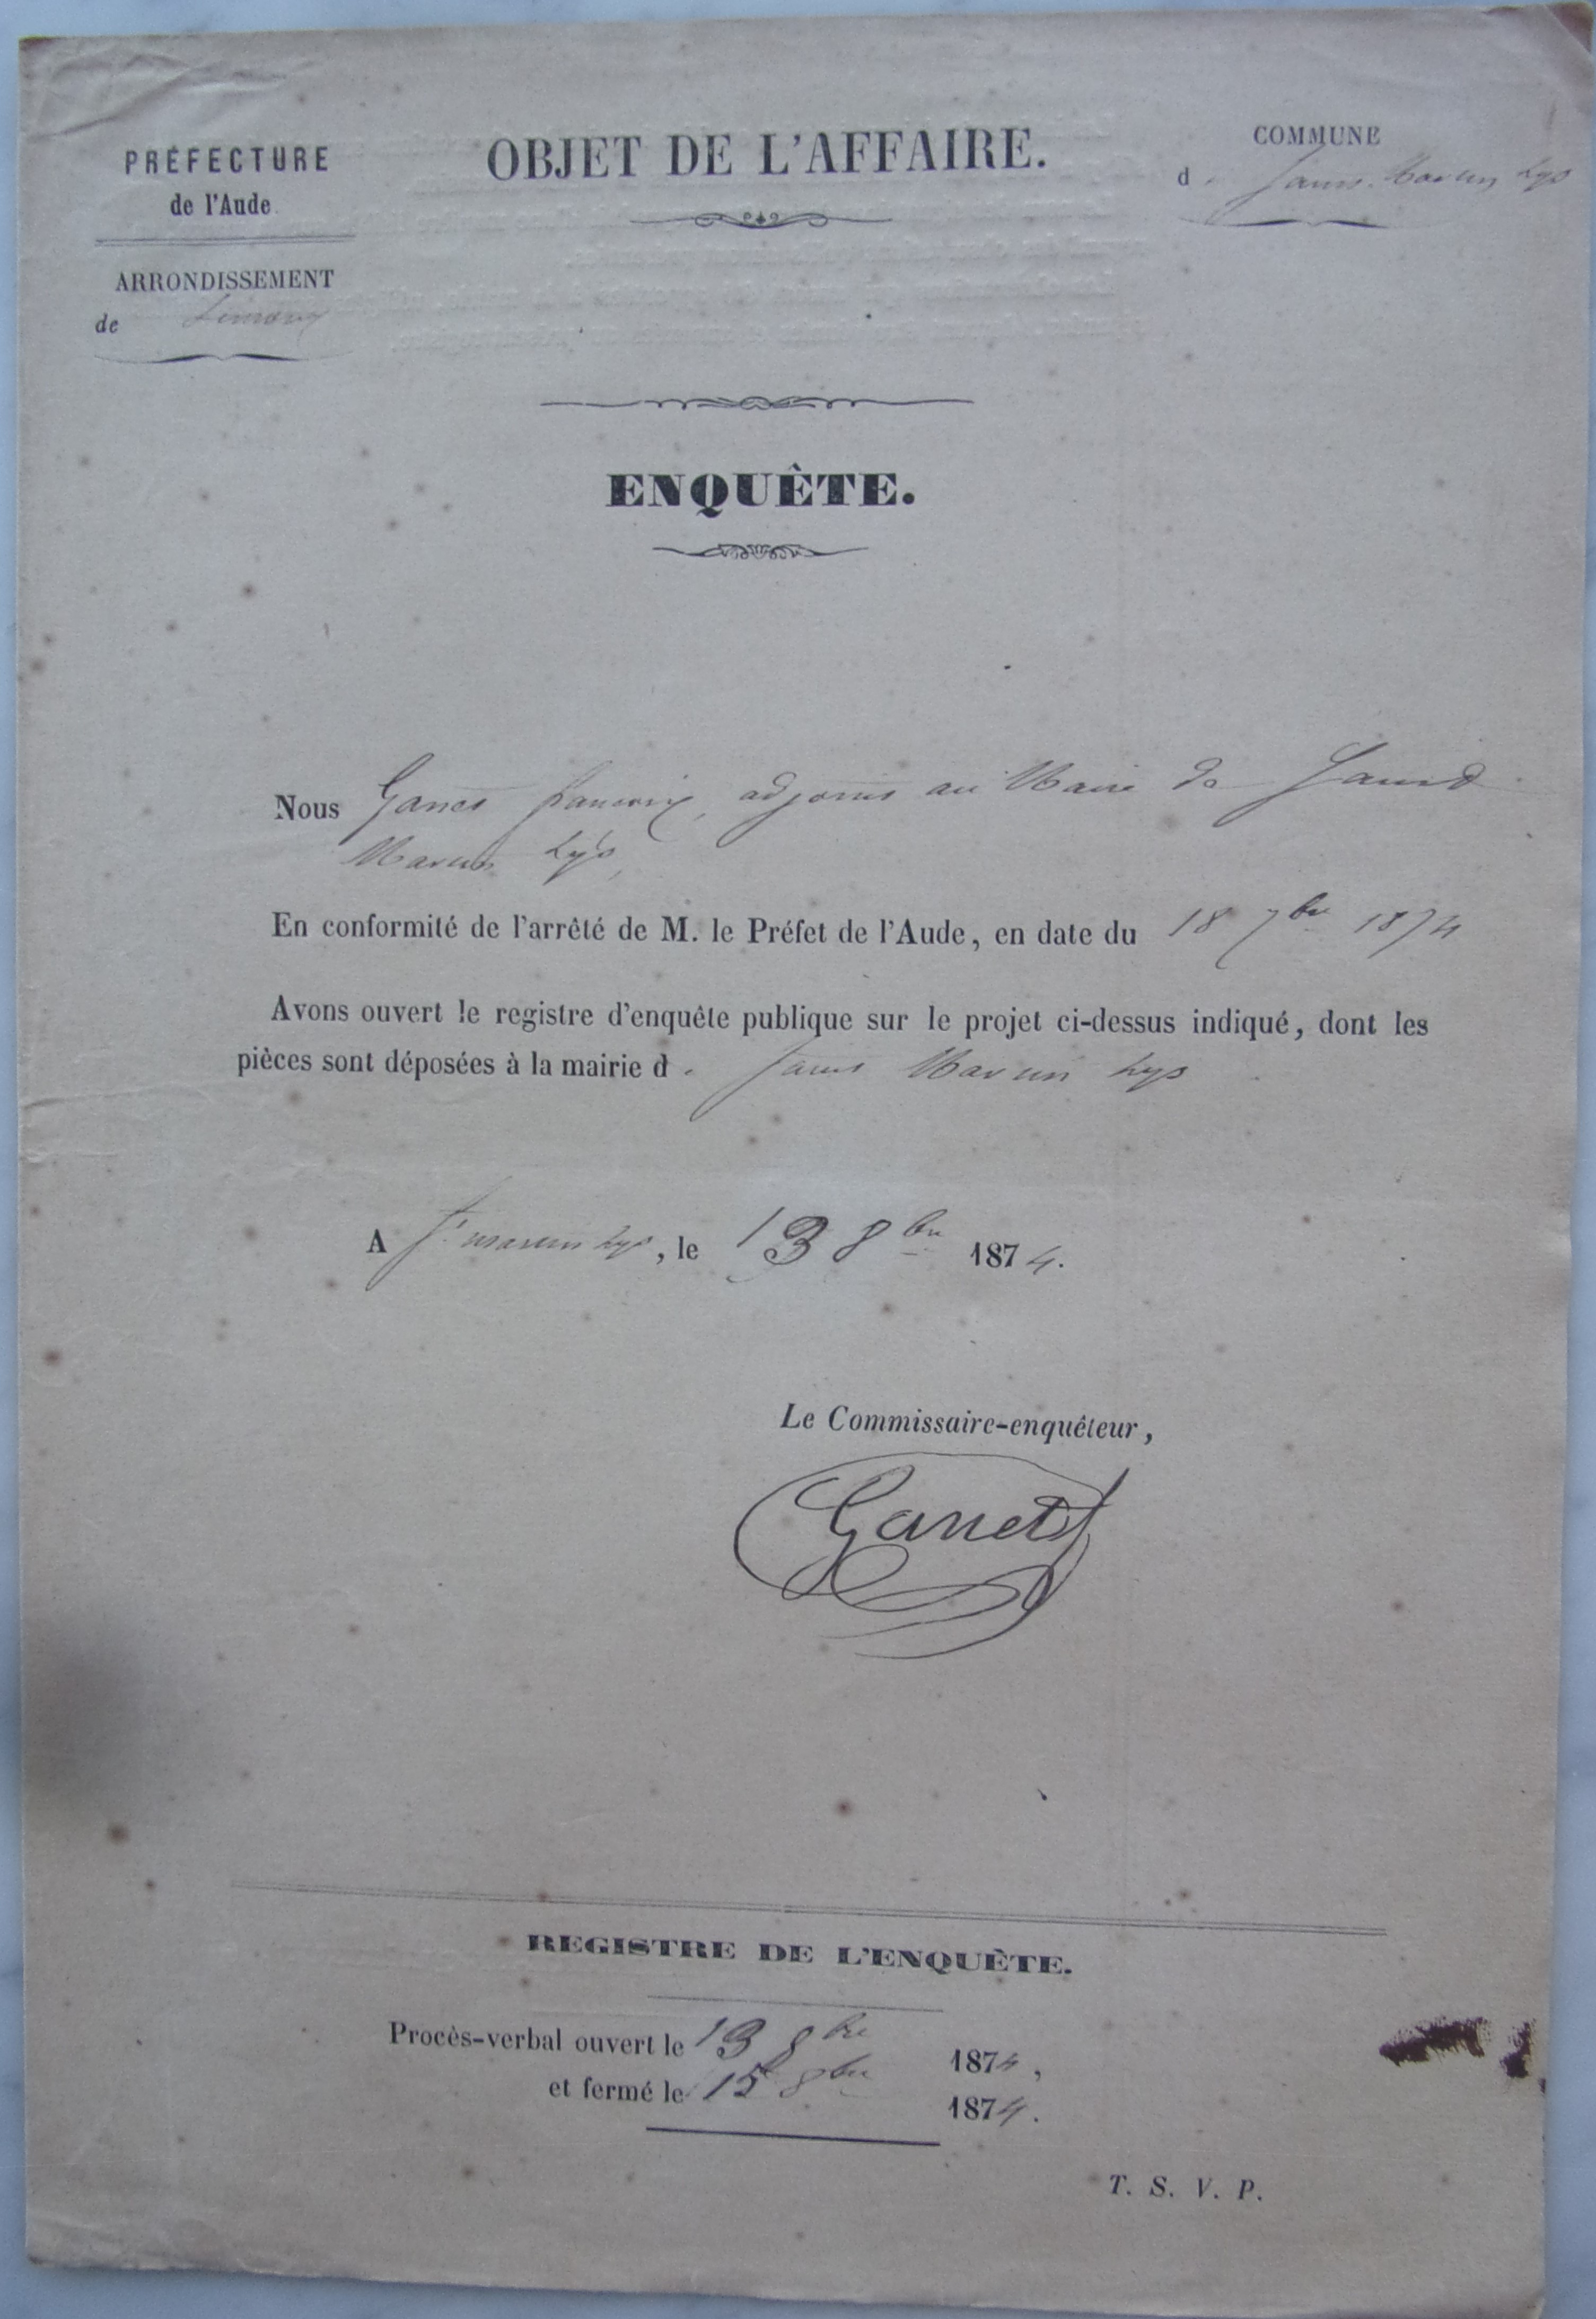 PRÉFECTURE
de l'Aude
ARRONDISSEMENT
de Limoux
OBJET DE L'AFFAIRE.
COMMUNE
d. Saint-Martin Lys
ENQUÊTE.
Nous Ganet françois, adjoint au Maire de Saint
Martin Lys,
En conformité de l'arrêté de M. le Préfet de l'Aude, en date du 18 7bre 1874
Avons ouvert le registre d'enquête publique sur le projet ci-dessus indiqué, dont les
pièces sont déposées à la mairie d. Saint Martin Lys
A St martin Lys, le 13 8bre 1874.
Le Commissaire-enquêteur,
Ganet
REGISTRE DE L'ENQUÊTE.
Procès-verbal ouvert le 13 8bre 1874,
et fermé le 15 8bre 1874.
T. S. V. P.